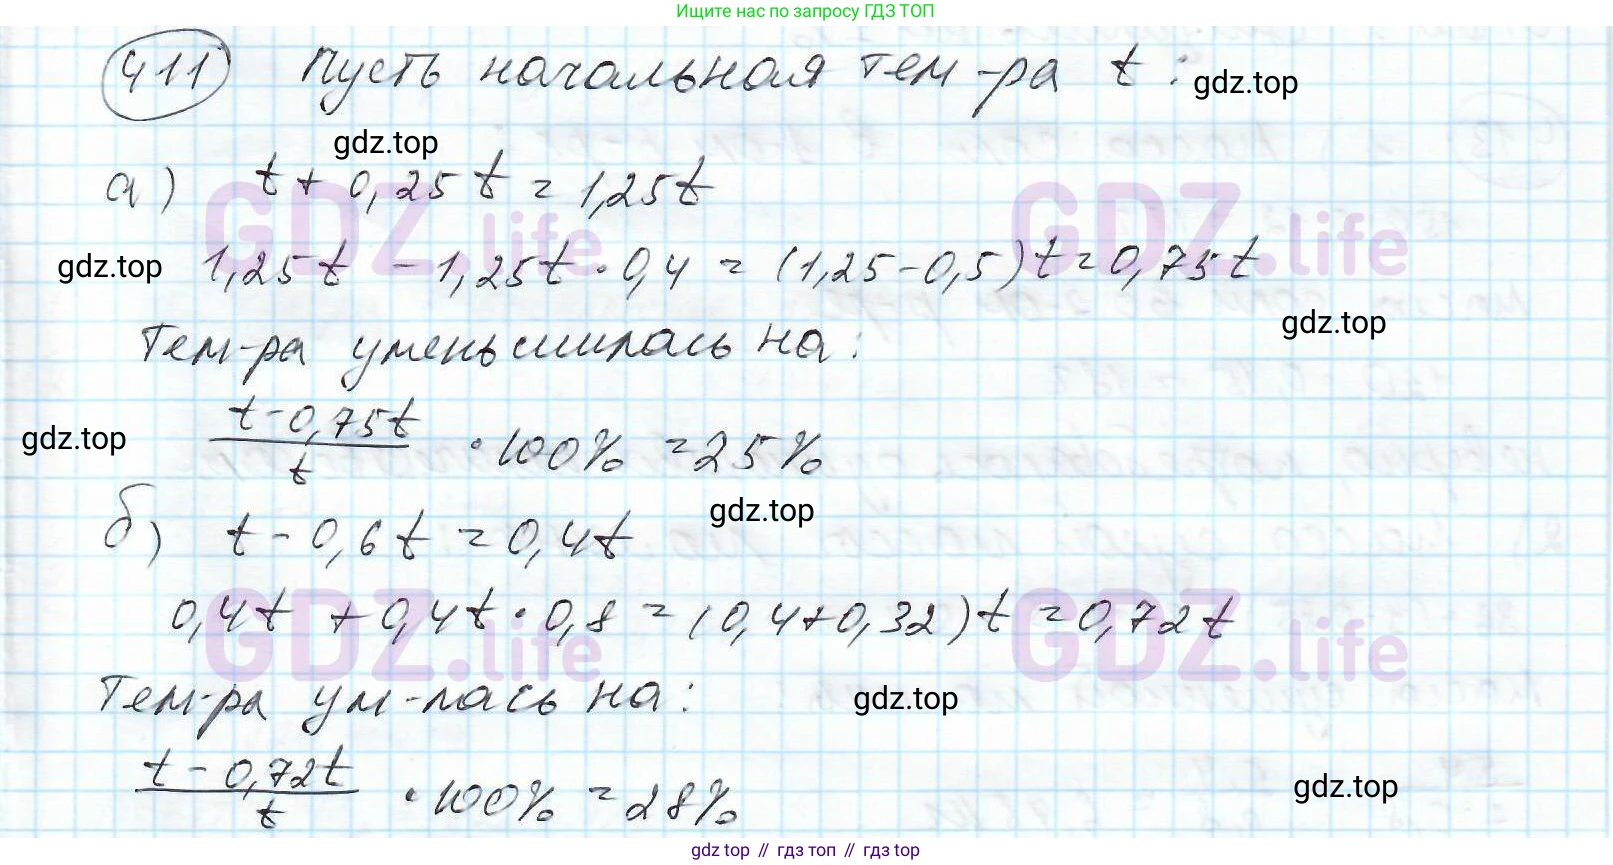 Ищите нас по запросу ГДЗ ТОП
411 Пусть начальная тем-ра t:
gdz.top
gdz.top
а) t + 0,25t = 1,25t
GDZ.life GDZ.life
gdz.top
1,25t - 1,25t · 0,4 = (1,25-0,5)t = 0,75t
gdz.top
Тем-ра уменьшилась на:
gdz.top
t-0,75t/t · 100% = 25%
gdz.top
б) t - 0,6t = 0,4t
GDZ.life GDZ.life
0,4t + 0,4t · 0,8 = (0,4+0,32)t = 0,72t
Тем-ра ум-лась на:
gdz.top
t - 0,72t/t · 100% = 28%
gdz.top
gdz top // гдз топ // гдз top